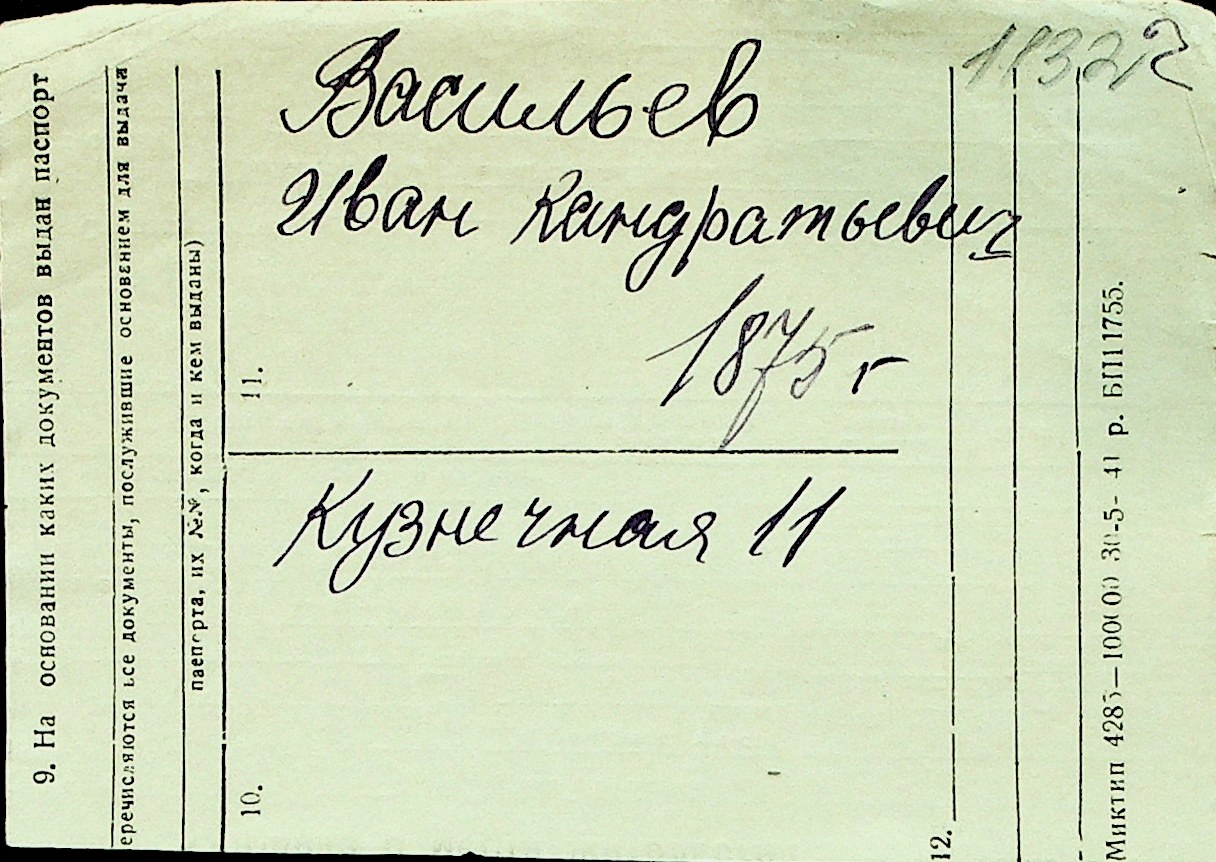 Васильев
Иван Кандратьевич
1875 г
Кузнечная 11
9. На основании каких документов выдан паспорт
еречисляются все документы, послужившие основением для выдача
паепорта, их №№, когда и кем выданы)
10.
11.
12.
Миктип 4285—100000 30-5- 41 р. БП11755.